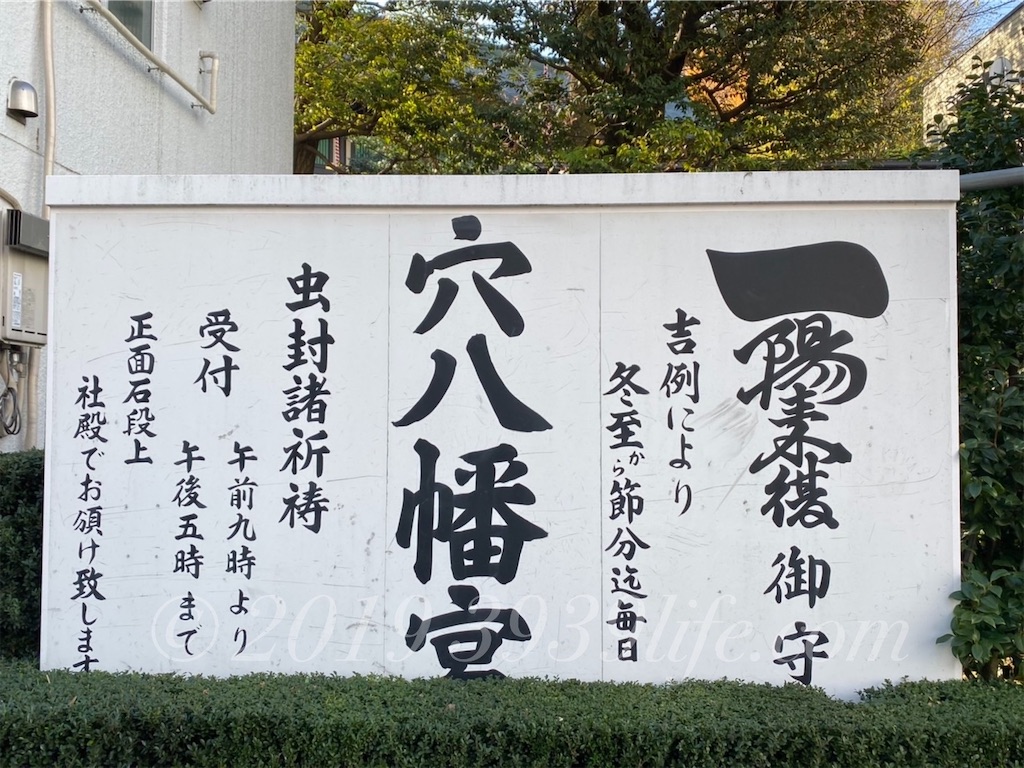 一陽来復 御守
吉例により
冬至から節分迄毎日
穴八幡宮
虫封諸祈祷
受付
午前九時より
午後五時まで
正面石段上
社殿でお頒け致します
©2019 393
life.com